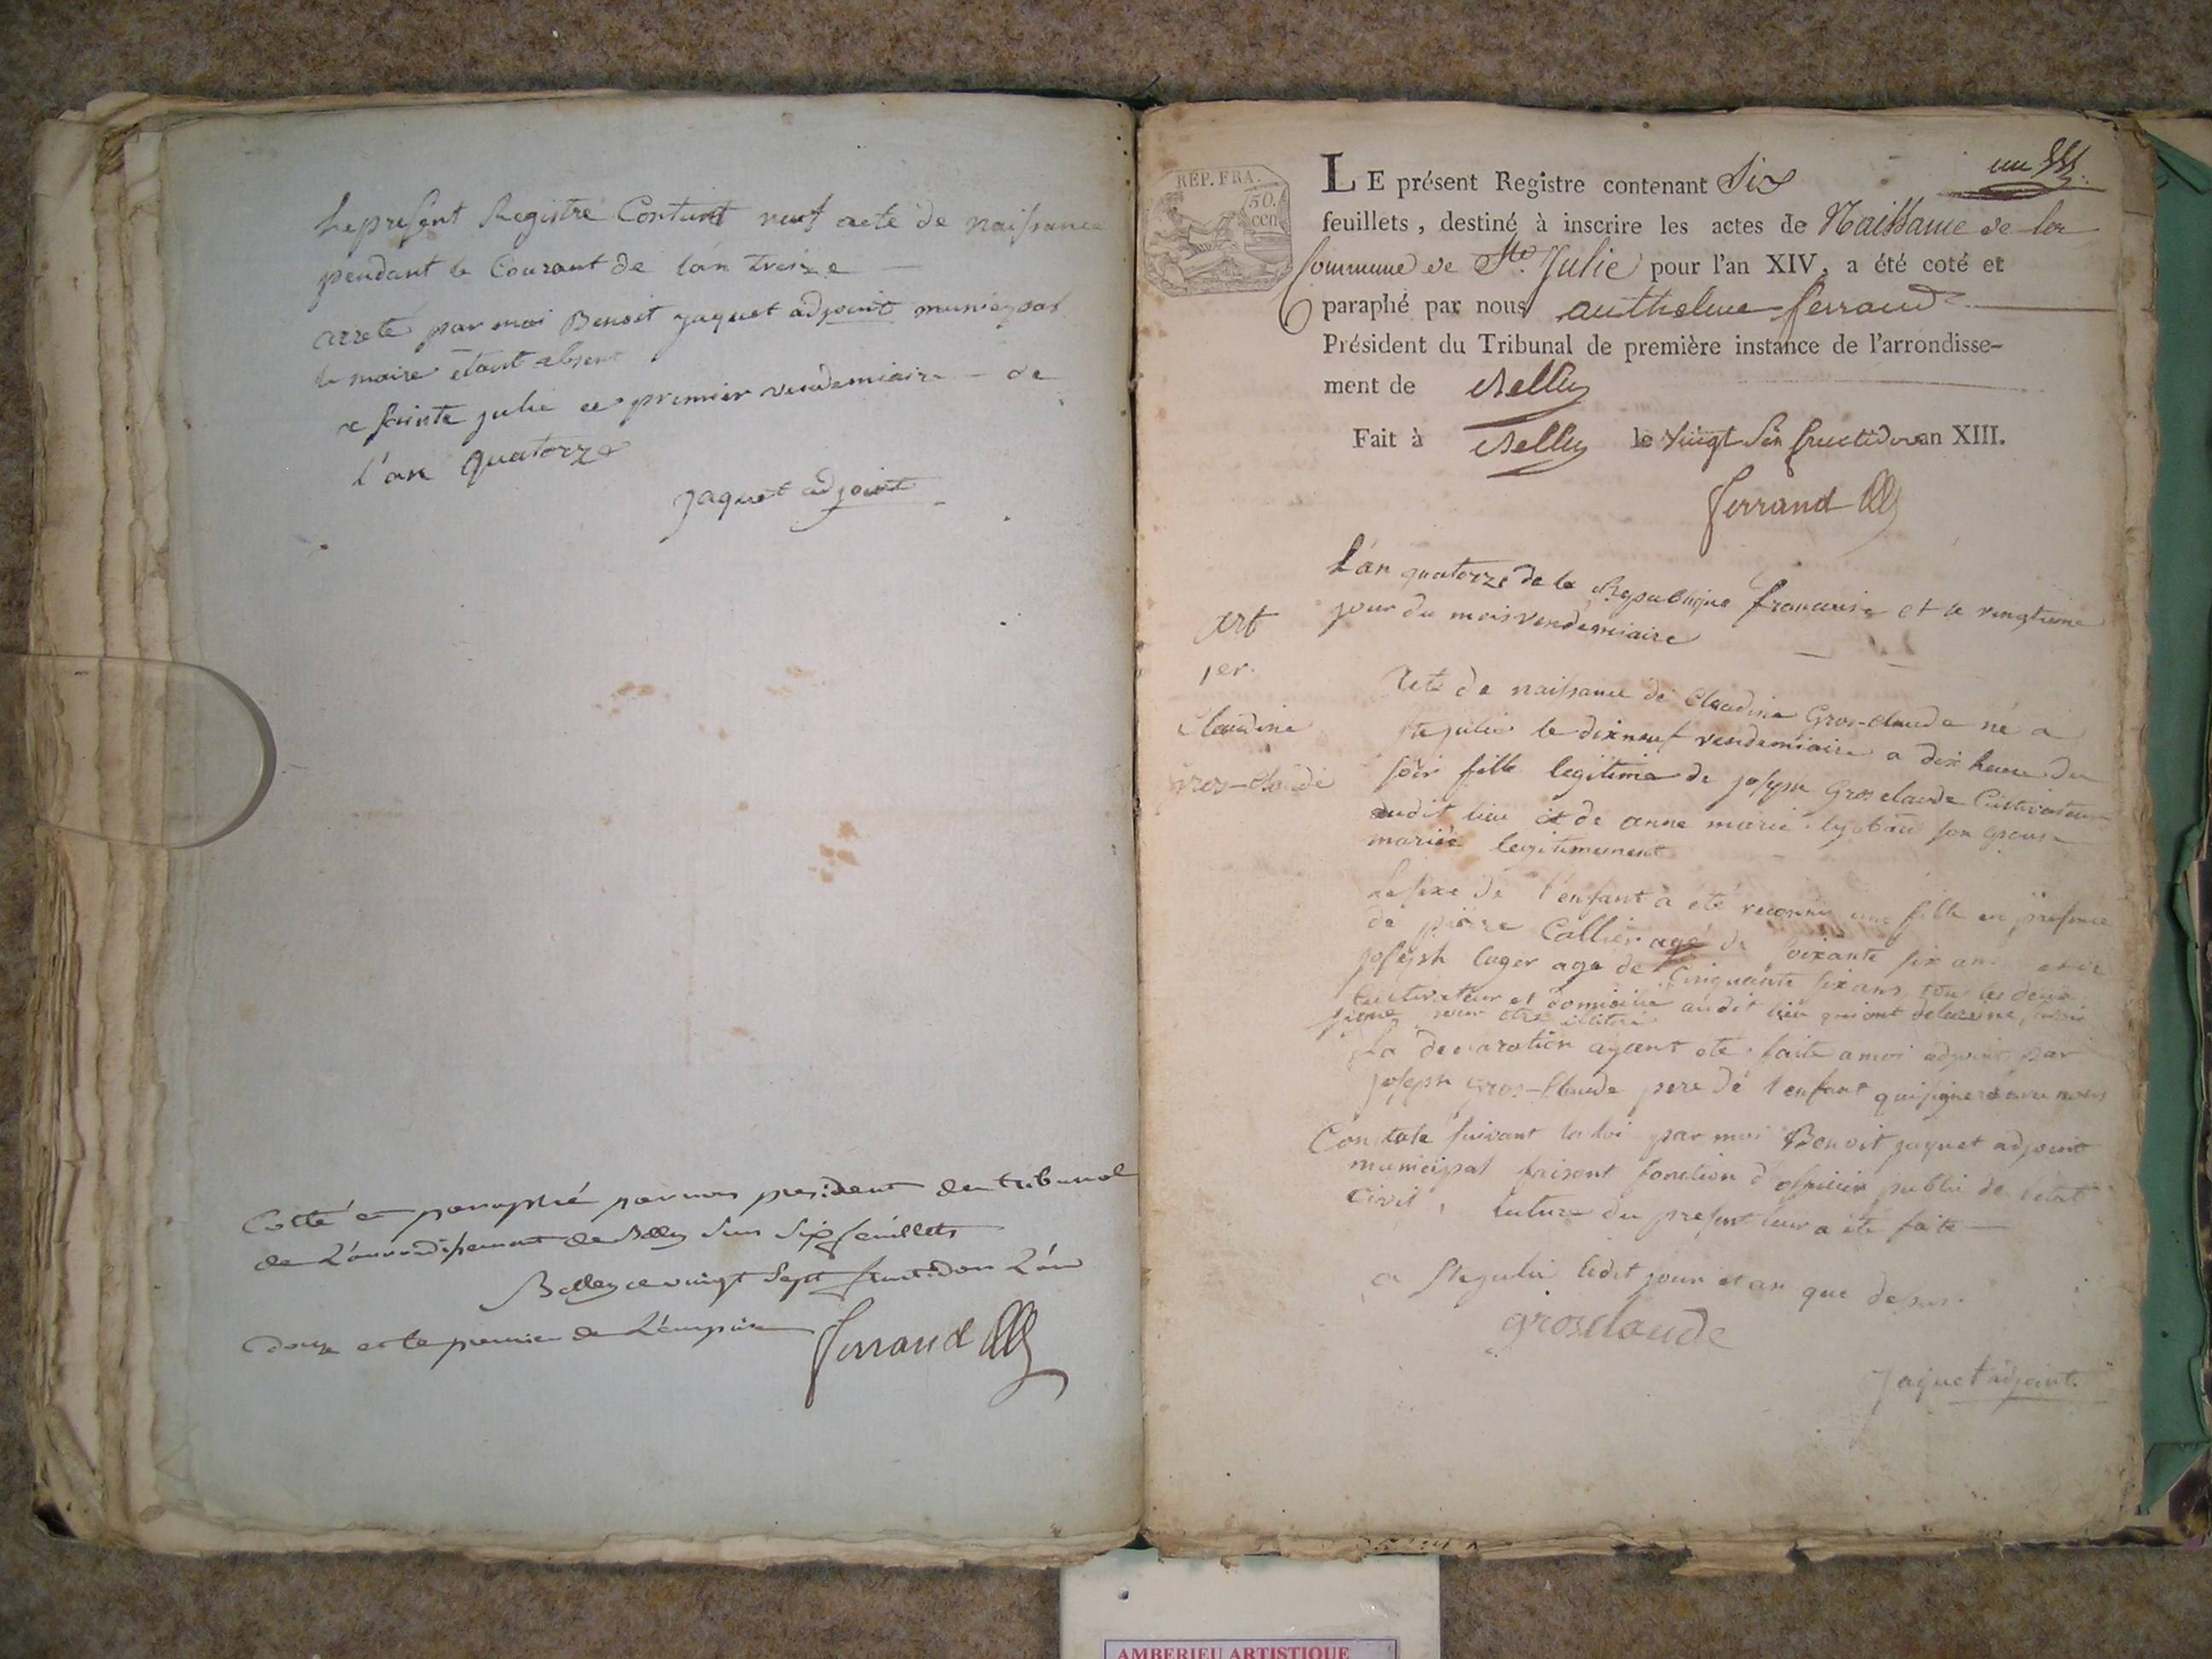 Le present Registre Contient neuf acte de naissance
pendant le Courant de lán treize
arreté par moi Benoit jaquet adjoint municipal
le maire étant absent
a sainte julie ce premier vendemiaire - de
l'an quatorze
jaquet adjoint
Cotté et paraphé par nous president du tribunal
de L'arrondissement de Belley Sur Six feuillets
Belley ce vingt Sept fructidor L'an
douze et le premier de L'empire
Ferrand
REP. FRA.
50.
cen
un
LE présent Registre contenant Six
feuillets, destiné à inscrire les actes de Naissance de la
Commune de Ste. Julie pour l'an XIV, a été coté et
paraphé par nous anthelme ferrand
Président du Tribunal de première instance de l'arrondisse-
ment de Belley
Fait à Belley le vingt Six fructidor an XIII.
Ferrand
L'án quatorze de la Republique francaise et le vingtieme
jour du mois vendemiaire
Art
1er.
Claudine
Gros-claude
Acte de naissance de Claudine Gros-claude né a
Ste julie le dixneuf vendemiaire a dix heure du
soir fille legitime de joseph Gros claude Cultivateur
audit lieu et de anne marie son epouse
mariée legitimement
Le sexe de l'enfant à eté reconnu une fille en presence
de pierre Collier agé de soixante six ans et de
joseph Cuger agé de Cinquante six ans tou les deux
Cultivateur et domicilié audit lieu qui ont
illiteré
La declaration ayant eté faite a moi adjoint par
joseph Gros-Claude pere de l'enfant qui signera avec nous
Constaté suivant la loi par moi Benoit jaquet adjoint
municipal faisant fonction d'officier public de l'etat
Civil, lecture du present leur a eté faite
a Ste julie ledit jour et an que dessus.
grosclaude
Jaquet adjoint
AMBERIEU ARTISTIQUE